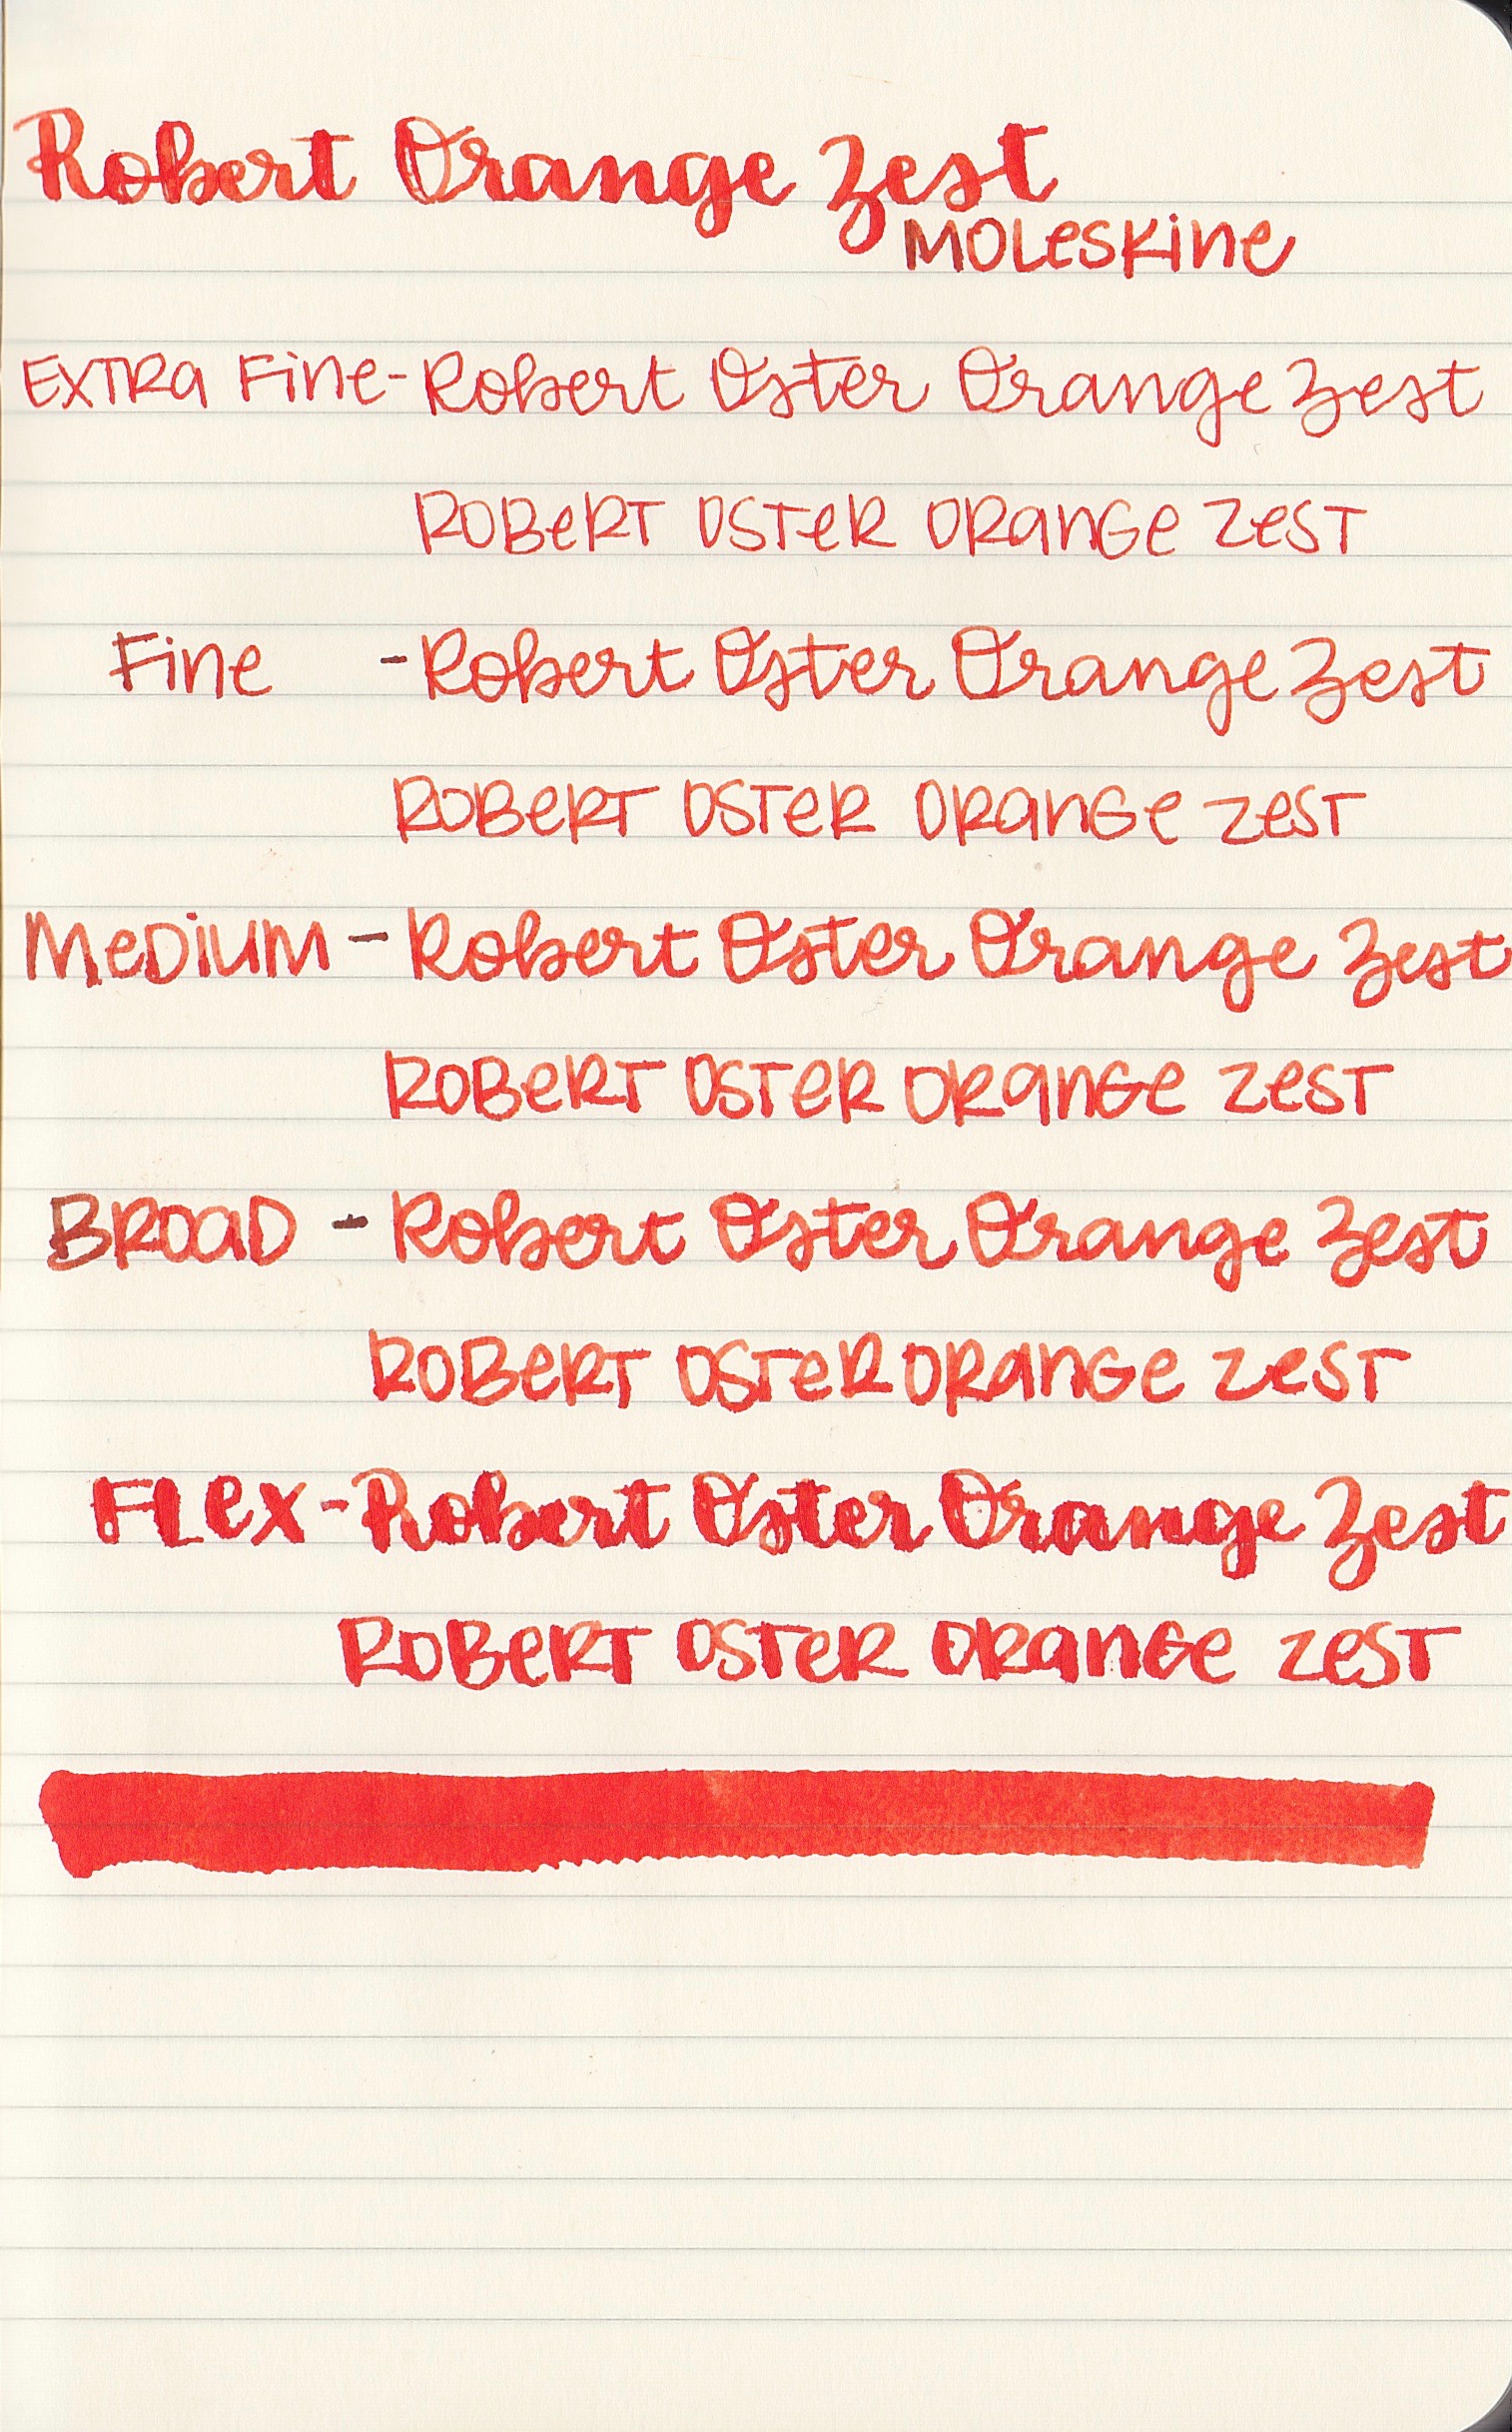 Robert Orange Zest
Moleskine
Extra Fine - Robert Oster Orange Zest
Robert Oster Orange Zest
Fine - Robert Oster Orange Zest
Robert Oster Orange Zest
Medium - Robert Oster Orange Zest
Robert Oster Orange Zest
Broad - Robert Oster Orange Zest
Robert Oster Orange Zest
Flex - Robert Oster Orange Zest
Robert Oster Orange Zest